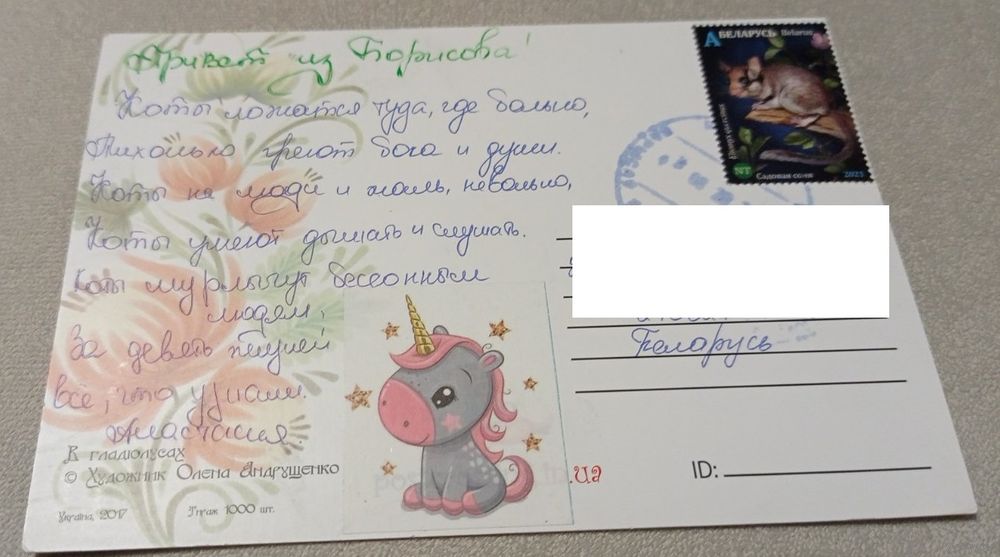 Привет из Борисова!
Коты ложатся туда, где больно,
Тихонько греют бока и души.
Коты на люди и жаль, невольно,
Коты умеют дышать и слушать.
Коты мурлычут бессонным
людям,
За девять жизней
все, что узнали.
Анастасия.
В гладиолусах
© Художник Олена Андрущенко
Україна, 2017 Тираж 1000 шт.
А БЕЛАРУСЬ Belarus
NT Садовая соня 2023
Беларусь
.ua
ID: